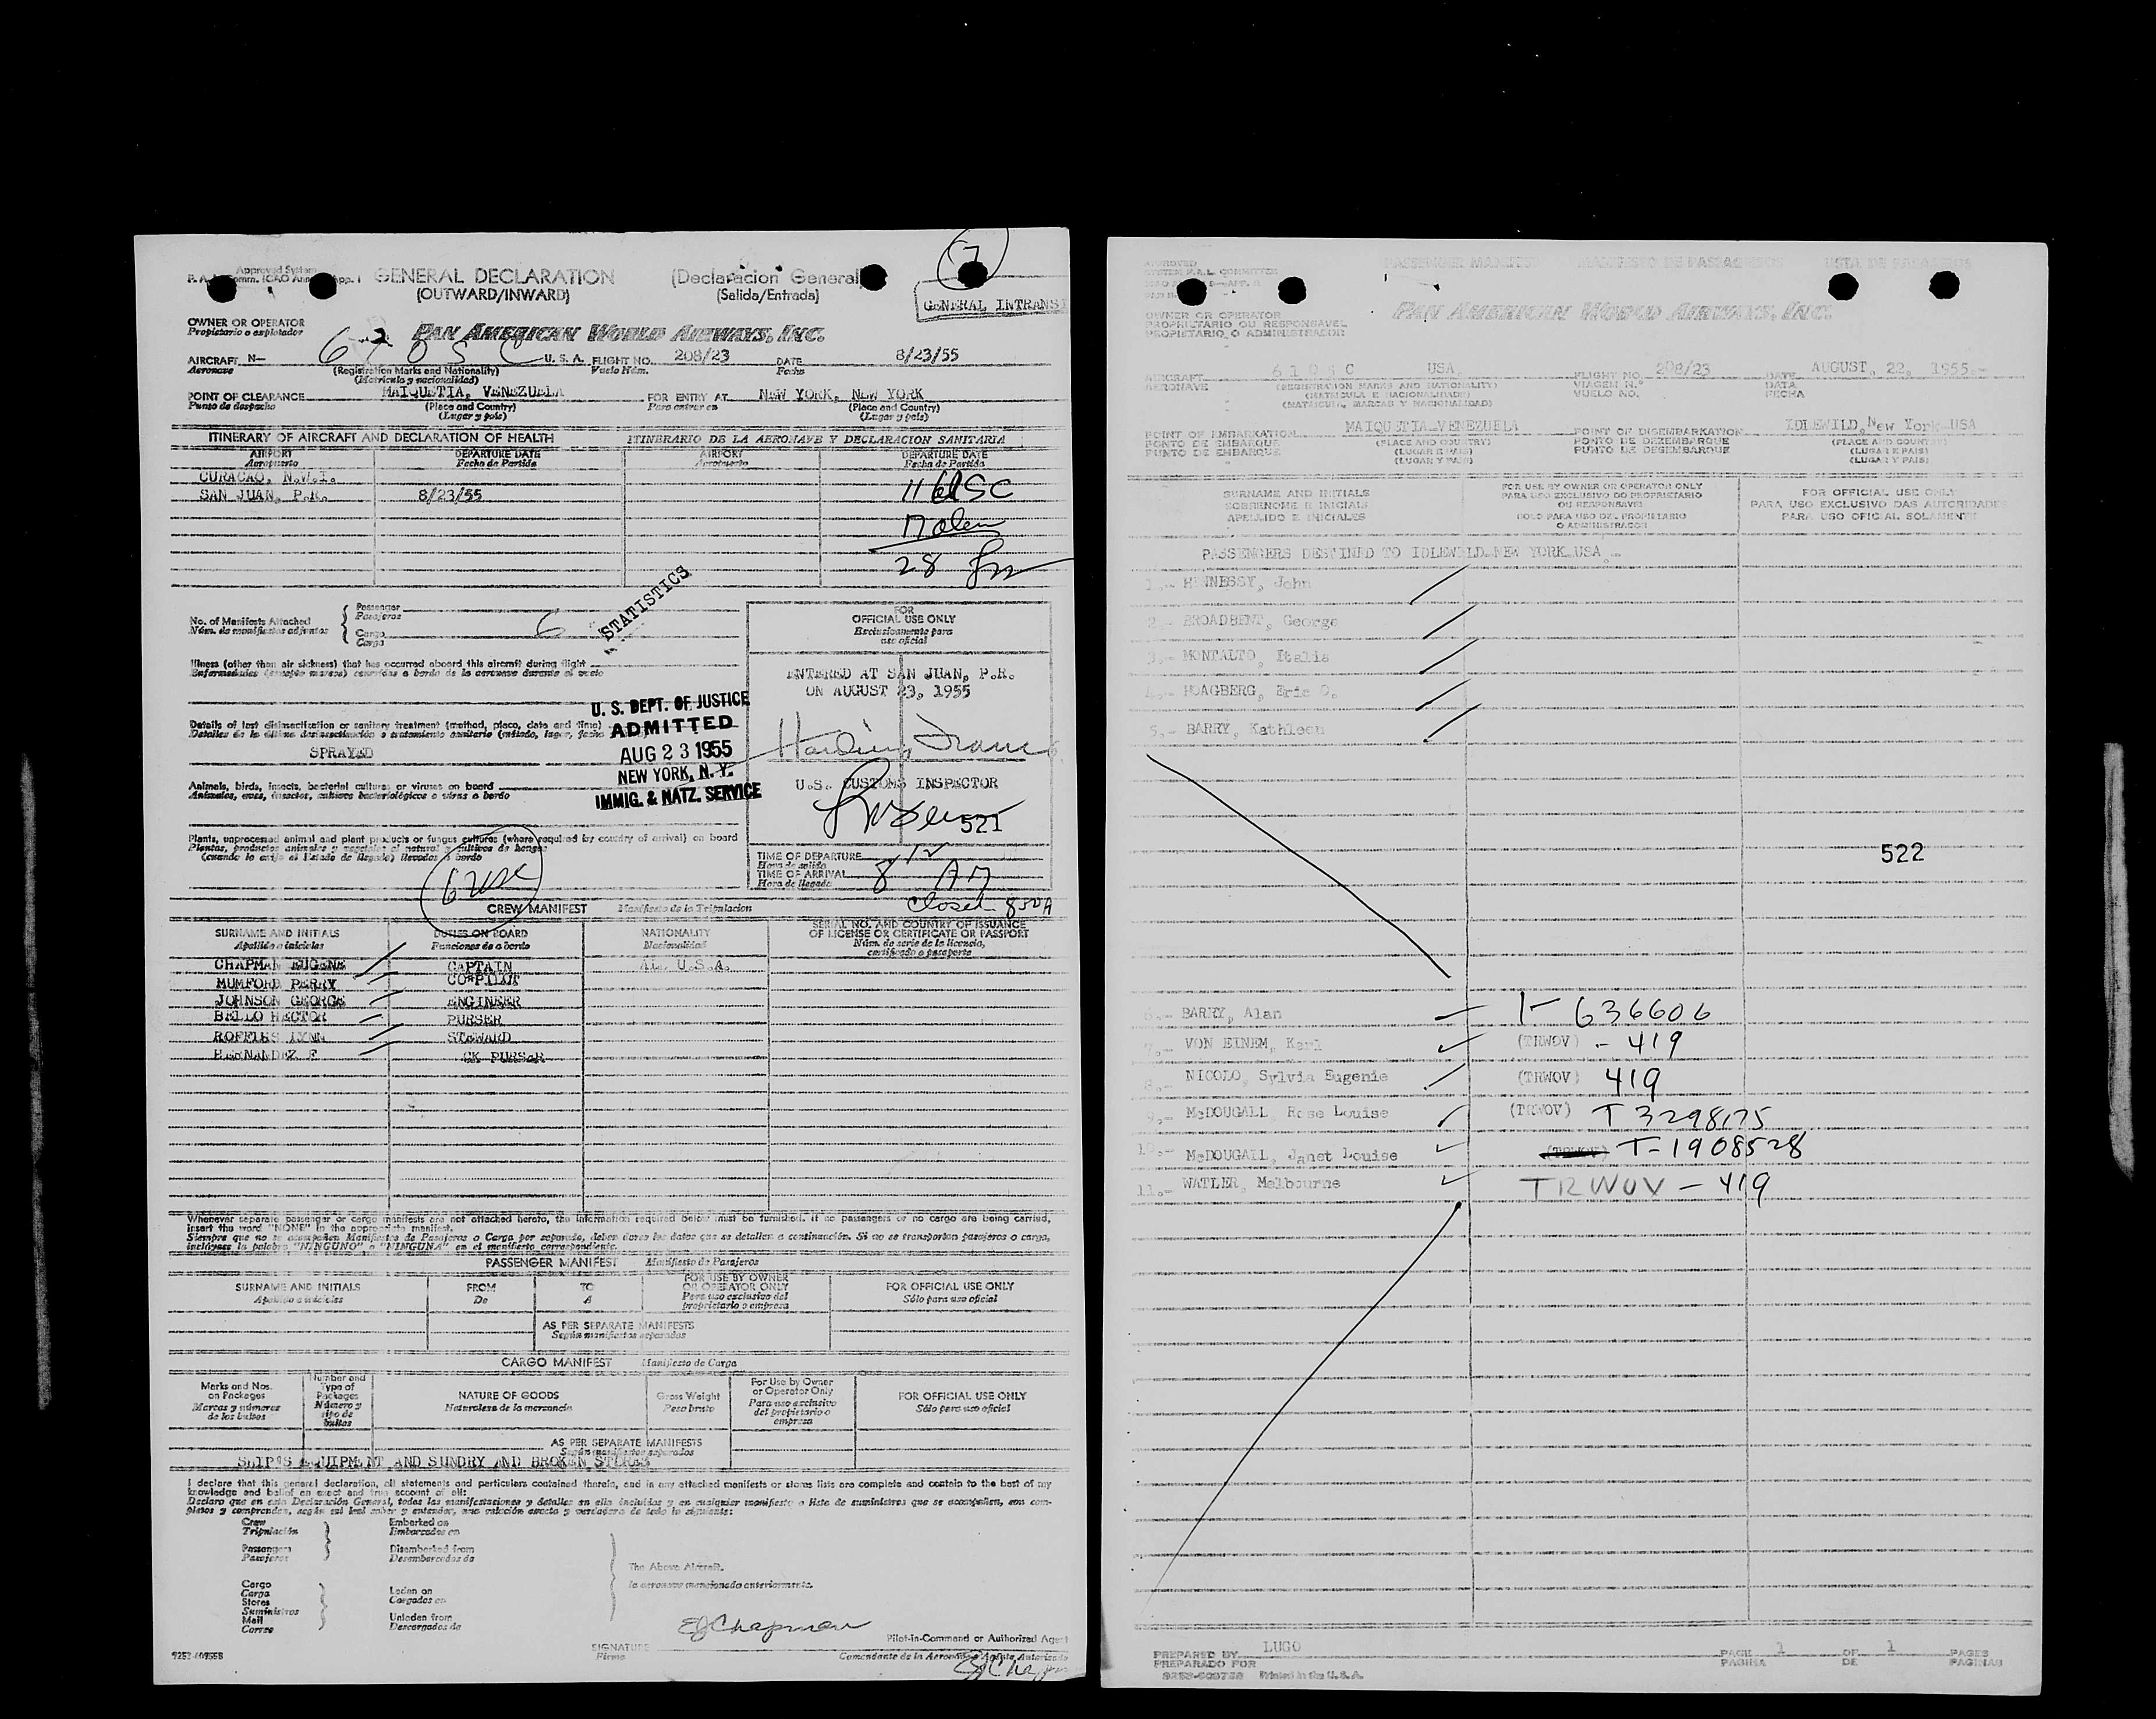 17
Approved System
GENERAL DECLARATION (Declaracion General)
(OUTWARD/INWARD) (Salida/Entrada)
GENERAL INTRANSI
OWNER OR OPERATOR
Propietario o explotador
PAN AMERICAN WORLD AIRWAYS, INC.
AIRCRAFT N— U. S. A. FLIGHT NO. 208/23 DATE 8/23/55
Aeronave (Registration Marks and Nationality) Vuelo Núm. Fecha
(Matricula y nacionalidad)
POINT OF CLEARANCE MAIQUETIA, VENEZUELA FOR ENTRY AT NEW YORK, NEW YORK
Punto de despacho (Place and Country) Para entrar en (Place and Country)
(Lugar y país) (Lugar y país)
ITINERARY OF AIRCRAFT AND DECLARATION OF HEALTH ITINERARIO DE LA AERONAVE Y DECLARACION SANITARIA
AIRPORT DEPARTURE DATE AIRPORT DEPARTURE DATE
Aeropuerto Fecha de Partida Aeropuerto Fecha de Partida
CURACAO, N.W.I.
SAN JUAN, P.R. 8/23/55
11 USC
17 alem
28
No. of Manifests Attached
Núm. de manifiestos adjuntos
Passenger
Pasajeros
Cargo
Carga
6
STATISTICS
FOR
OFFICIAL USE ONLY
Exclusivamente para
uso oficial
Illness (other than air sickness) that has occurred aboard this aircraft during flight
Enfermedades (excepto mareos) ocurridas a bordo de la aeronave durante el vuelo
ENTERED AT SAN JUAN, P.R.
ON AUGUST 23, 1955
U.S. CUSTOMS INSPECTOR
521
Details of last disinsectization or sanitary treatment (method, place, date and time)
Detalles de la última desinsectización o tratamiento sanitario (método, lugar, fecha
SPRAYED
U. S. DEPT. OF JUSTICE
ADMITTED
AUG 23 1955
NEW YORK, N. Y.
IMMIG. & NATZ. SERVICE
Animals, birds, insects, bacterial cultures or viruses on board
Animales, aves, insectos, cultivos bacteriológicos o virus a bordo
Plants, unprocessed animal and plant products or fungus cultures (where required by country of arrival) on board
Plantas, productos animales y vegetales al natural y cultivos de hongos
(cuando lo exija el Estado de llegada) llevados a bordo
6 USC
TIME OF DEPARTURE
Hora de salida
TIME OF ARRIVAL 8 12 AM
Hora de llegada
Closed 850A
CREW MANIFEST Manifiesto de la Tripulacion
SURNAME AND INITIALS DUTIES ON BOARD NATIONALITY SERIAL NO. AND COUNTRY OF ISSUANCE
OF LICENSE OR CERTIFICATE OR PASSPORT
Apellido e iniciales Funciones de a bordo Nacionalidad Núm. de serie de la licencia,
certificado o pasaporte
CHAPMAN EUGENE CAPTAIN AL. U.S.A.
MUMFORD PERRY CO*PILOT
JOHNSON GEORGE ENGINEER
BELLO HECTOR PURSER
ROFFLES LYNN STEWARD
HERNANDEZ F CK PURSER
Whenever separate passenger or cargo manifests are not attached hereto, the information required below must be furnished. If no passengers or no cargo are being carried,
insert the word "NONE" in the appropriate manifest.
Siempre que no se acompañen Manifiestos de Pasajeros o Carga por separado, deben darse los datos que se detallan a continuación. Si no se transportan pasajeros o carga,
inclúyase la palabra "NINGUNO" o "NINGUNA" en el manifiesto correspondiente.
PASSENGER MANIFEST Manifiesto de Pasajeros
SURNAME AND INITIALS FROM TO FOR USE BY OWNER
OR OPERATOR ONLY FOR OFFICIAL USE ONLY
Apellido e iniciales De A Para uso exclusivo del
propietario o empresa Sólo para uso oficial
AS PER SEPARATE MANIFESTS
Según manifiestos separados
CARGO MANIFEST Manifiesto de Carga
Marks and Nos.
on Packages
Marcas y números
de los bultos
Number and
Type of
Packages
Número y
tipo de
bultos
NATURE OF GOODS
Naturaleza de la mercancía
Gross Weight
Peso bruto
For Use by Owner
or Operator Only
Para uso exclusivo
del propietario o
empresa
FOR OFFICIAL USE ONLY
Sólo para uso oficial
AS PER SEPARATE MANIFESTS
Según manifiestos separados
SHIP'S EQUIPMENT AND SUNDRY AND BROKEN STORES
I declare that this general declaration, all statements and particulars contained therein, and in any attached manifests or stores lists are complete and contain to the best of my
knowledge and belief an exact and true account of all:
Declaro que en esta Declaración General, todas las manifestaciones y detalles en ella incluídos y en cualquier manifiesto o lista de suministros que se acompañen, son com-
pletos y comprenden, según mi leal saber y entender, una relación exacta y verdadera de todo lo siguiente:
Crew
Tripulación
Passengers
Pasajeros
Embarked on
Embarcados en
Disembarked from
Desembarcados de
The Above Aircraft.
la aeronave mencionada anteriormente.
Cargo
Carga
Stores
Suministros
Mail
Correo
Laden on
Cargados en
Unladen from
Descargados de
SIGNATURE EJ Chapman Pilot-in-Command or Authorized Agent
Firma Comandante de la Aeronave o Agente Autorizado
EJ Chapman
APPROVED
SYSTEM F.A.L. COMMITTEE
PASSENGER MANIFEST MANIFESTO DE PASSAGEIROS LISTA DE PASAJEROS
OWNER OR OPERATOR
PROPRIETARIO OU RESPONSAVEL
PROPIETARIO O ADMINISTRADOR
PAN AMERICAN WORLD AIRWAYS, INC.
AIRCRAFT USA. FLIGHT NO. 208/23 DATE AUGUST, 22, 1955.-
AERONAVE (REGISTRATION MARKS AND NATIONALITY) VIAGEM N.º DATA
(MATRICULA E NACIONALIDADE) VUELO NO. FECHA
(MATRICULA, MARCAS Y NACIONALIDAD)
POINT OF EMBARKATION MAIQUETIA VENEZUELA POINT OF DISEMBARKATION IDLEWILD, New York USA
PONTO DE EMBARQUE (PLACE AND COUNTRY) PONTO DE DEZEMBARQUE (PLACE AND COUNTRY)
PUNTO DE EMBARQUE (LUGAR E PAIS) PUNTO DE DESEMBARQUE (LUGAR E PAIS)
(LUGAR Y PAIS) (LUGAR Y PAIS)
SURNAME AND INITIALS
SOBRENOME E INICIAIS
APELLIDO E INICIALES
FOR USE BY OWNER OR OPERATOR ONLY
PARA USO EXCLUSIVO DO PROPRIETARIO
OU RESPONSAVEL
SOLO PARA USO DEL PROPIETARIO
O ADMINISTRADOR
FOR OFFICIAL USE ONLY
PARA USO EXCLUSIVO DAS AUTORIDADES
PARA USO OFICIAL SOLAMENTE
PASSENGERS DESTINED TO IDLEWILD NEW YORK USA
1.- HENNESSY, John
2.- BROADBENT, George
3.- MONTALTO, Italia
4.- HOAGBERG, Eric O.
5.- BARRY, Kathleen
522
6.- BARRY, Alan 1- 636606
7.- VON EINEM, Karl (TRWOV) - 419
8.- NICOLO, Sylvia Eugenie (TRWOV) 419
9.- McDOUGALL, Rose Louise (TRWOV) T 3298175
10.- McDOUGALL, Janet Louise (TRWOV) T-1908528
11.- WATLER, Melbourne TRWOV - 419
PREPARED BY LUGO PAGE 1 OF 1 PAGES
PREPARADO POR PAGINA DE PAGINAS
Printed in the U.S.A.